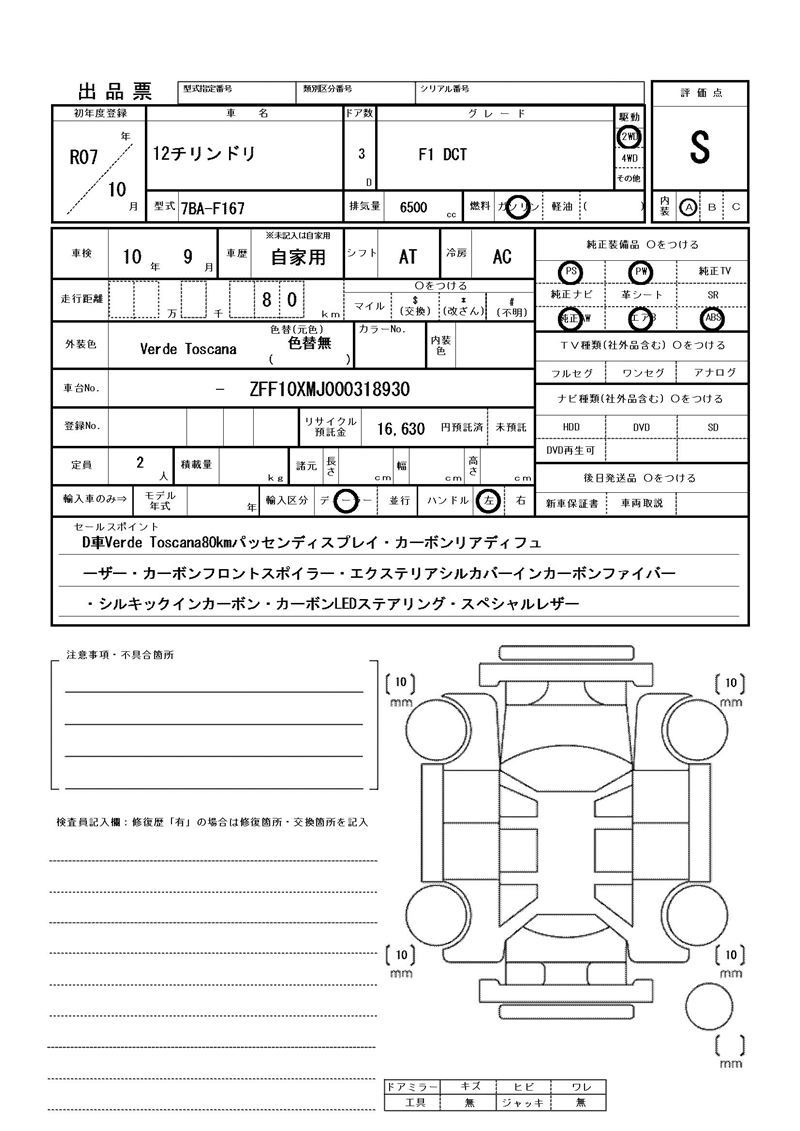 出品票 型式指定番号 類別区分番号 シリアル番号
評価点
S
初年度登録 車名 ドア数 グレード 駆動
R07 年 10 月
12チリンドリ 3 D F1 DCT
2WD
4WD
その他
型式 7BA-F167 排気量 6500 cc 燃料 ガソリン 軽油 ( )
内装 A B C
車検 10 年 9 月 車歴 ※未記入は自家用 自家用 シフト AT 冷房 AC
走行距離 万 千 8 0 km
○をつける
マイル $ (交換) * (改ざん) # (不明)
外装色 Verde Toscana 色替(元色) 色替無 ( ) カラーNo. 内装色
車台No. － ZFF10XMJ000318930
登録No. リサイクル預託金 16,630 円預託済 未預託
定員 2 人 積載量 kg 諸元 長さ cm 幅 cm 高さ cm
輸入車のみ⇒ モデル年式 年 輸入区分 ディーラー 並行 ハンドル 左 右
純正装備品 ○をつける
PS PW 純正TV
純正ナビ 革シート SR
純正AW エアB ABS
TV種類(社外品含む) ○をつける
フルセグ ワンセグ アナログ
ナビ種類(社外品含む) ○をつける
HDD DVD SD
DVD再生可
後日発送品 ○をつける
新車保証書 車両取説
セールスポイント
D車Verde Toscana80kmパッセンディスプレイ・カーボンリアディフュ
ーザー・カーボンフロントスポイラー・エクステリアシルカバーインカーボンファイバー
・シルキックインカーボン・カーボンLEDステアリング・スペシャルレザー
注意事項・不具合箇所
検査員記入欄：修復歴「有」の場合は修復箇所・交換箇所を記入
[10] mm
[10] mm
[10] mm
[10] mm
[ ] mm
ドアミラー キズ ヒビ ワレ
工具 無 ジャッキ 無